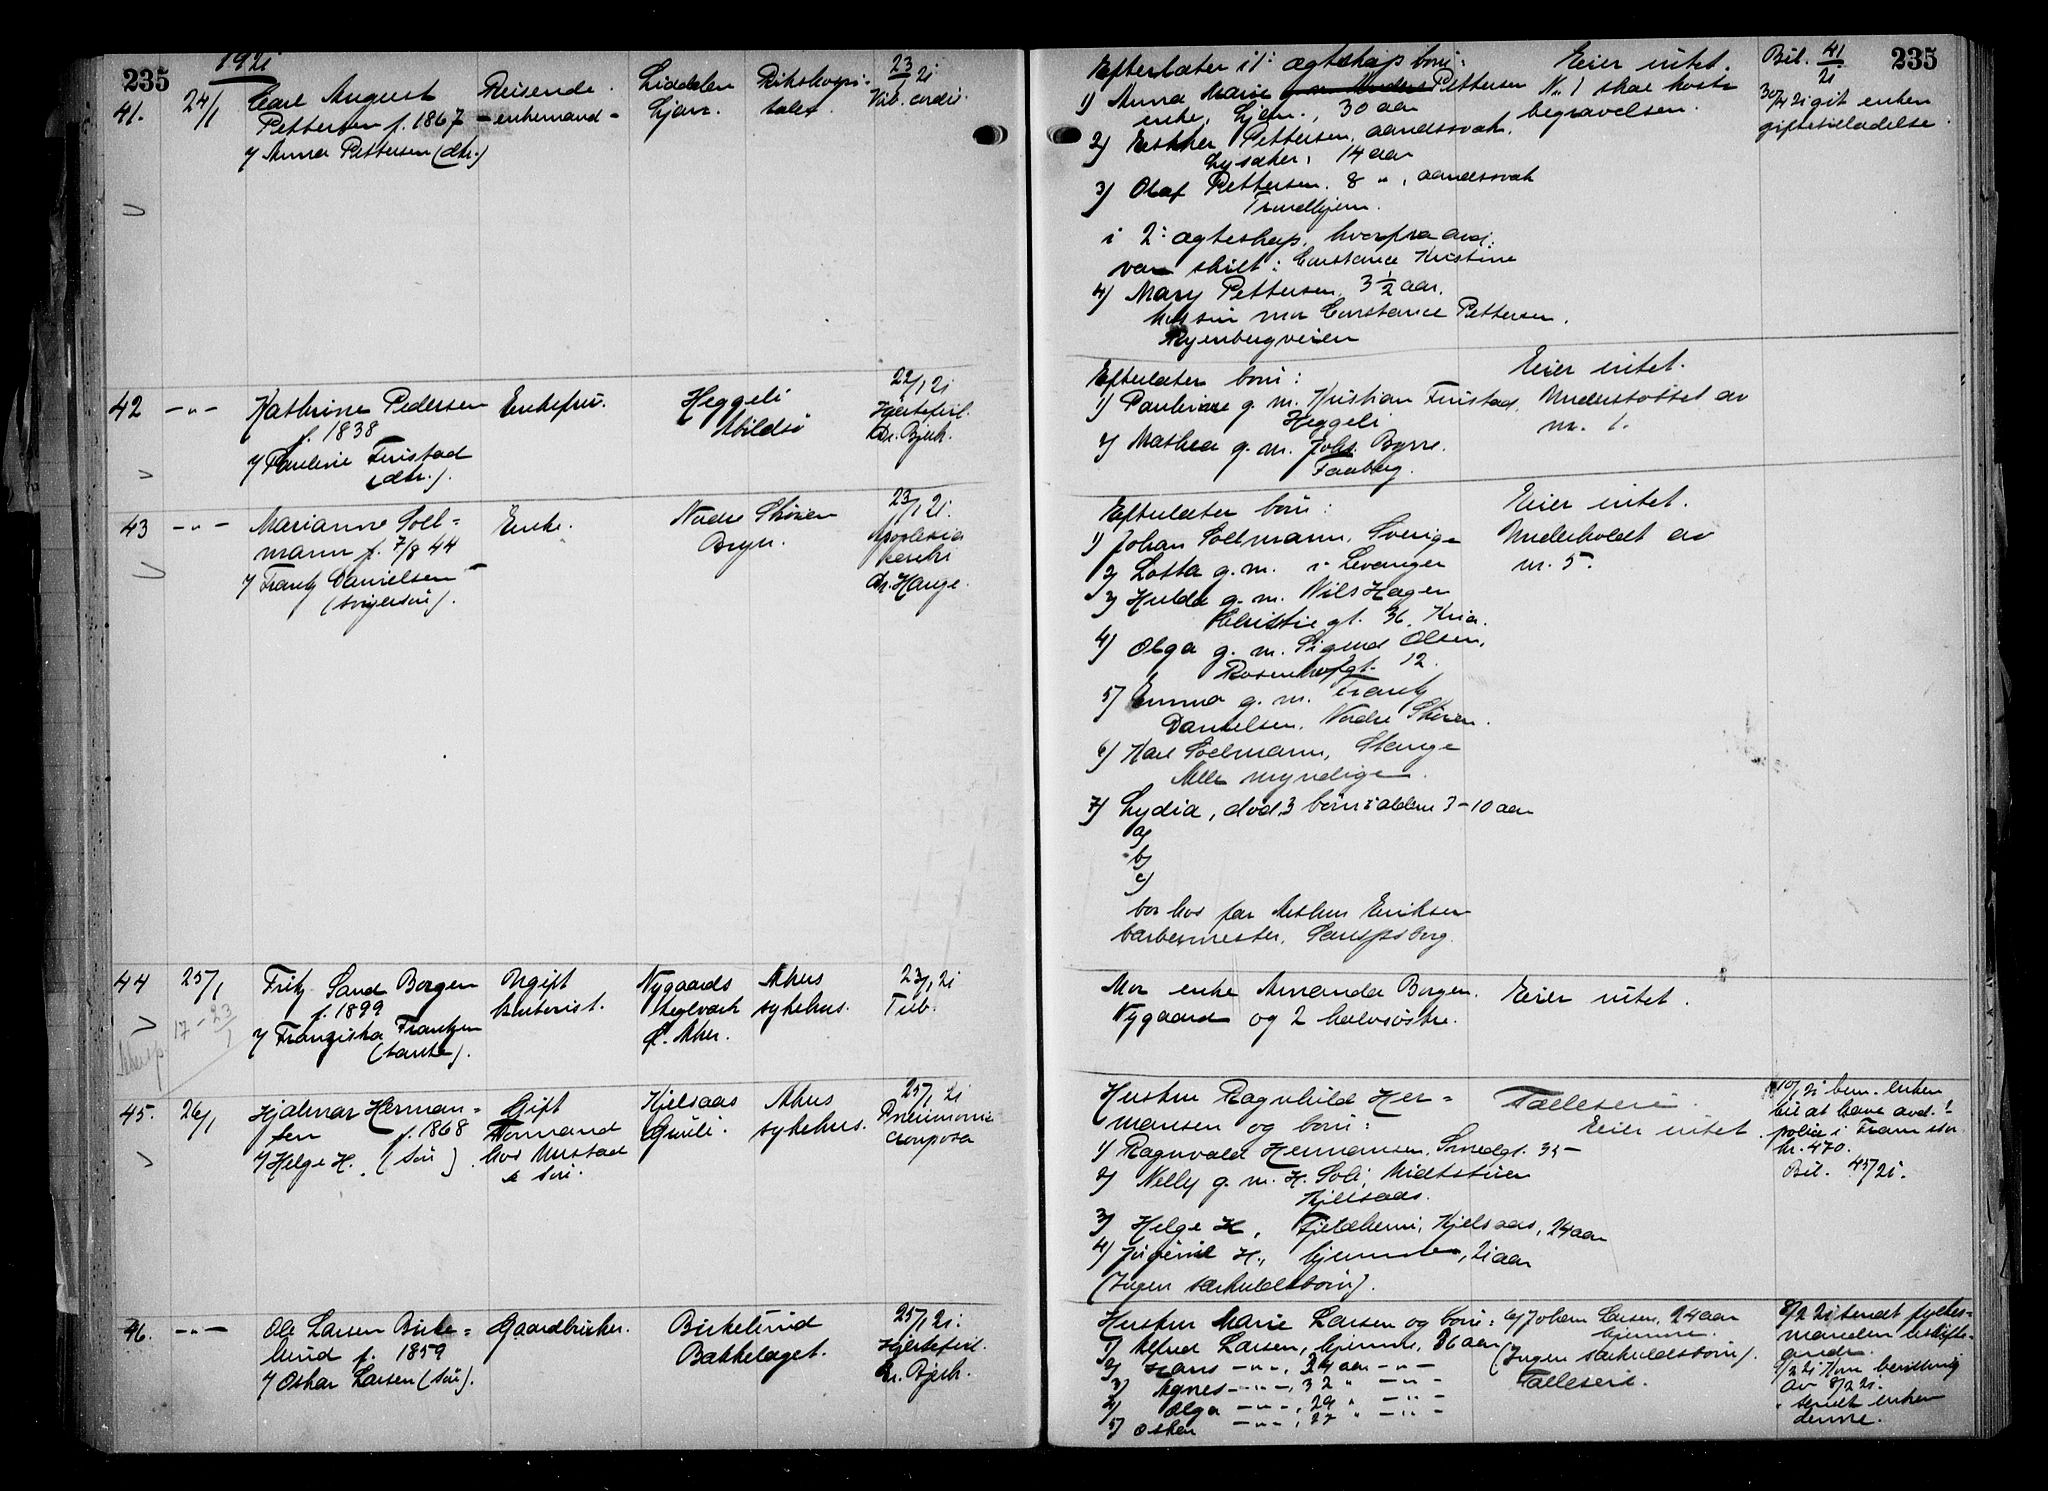 235
1921
41.
24/1
Carl August
Pettersen f. 1867
v/ Anna Pettersen (dtr.)
Reisende.
- enkemand -
Liddalen
Ljan.
Rikshospi-
talet
23/1 21
Vit. cordis.
42
-"-
Kathrine Pedersen
f. 1838
v/ Pauline Finstad
(dtr.).
Enkefru.
Heggeli
Abildsø
22/1 21
Hjertefeil.
Dr. Bjerk.
43
-"-
Marianne Soll-
mann f. 7/8 44
v/ Frantz Danielsen
(svigersøn).
Enke.
Nordre Skøien
Bryn.
23/1 21.
Apoplexia
cerebri
Dr. Hauge.
44
25/1
17 - 23/1
Fritz Sand Borgen
f. 1899
v/ Franziska Frantzen
(tante).
Ugift
kontorist.
Nygaards
teglverk
Ø. Aker.
Akers
sykehus.
23/1 21
Tub.
45.
26/1
Hjalmar Herman-
sen f. 1868
v/ Helge H. (søn)
Gift
Formand
hos Mustad
& Søn.
Kjelsaas
Grinli.
Akers
sykehus.
25/1 21
Pneumonia
crouposa
46.
-"-
Ole Larsen Birke-
lund f. 1859
v/ Oskar Larsen (søn).
Gaardbruker.
Birkelund
Bakkelaget.
25/1 21.
Hjertefeil.
Dr. Bjerk.
235
Efterlater i 1: ægteskap børn:
1) Anna Marie Pettersen
enke, Ljan., 30 aar
2) Esther Pettersen, aandssvak,
Lysaker, 14 aar
3) Olaf Pettersen, 8 ", aandssvak
Trondhjem.
i 2: ægteskap, hvorfra avd.
var skilt: Constance Kristine
4) Mary Pettersen, 3 1/2 aar,
hos sin mor Constance Pettersen,
Ryenbergveien
Eier intet.
Nr. 1 skal koste
begravelsen.
Bil. 41/21
30/4 21 git enken
giftetilladelse.
Efterlater børn:
1) Pauline g. m. Kristian Finstad,
Heggeli
2) Mathea g. m. Johs. Byrre.
Faaberg.
Eier intet.
Understøttet av
nr. 1.
Efterlater børn:
1) Johan Sollmann, Sverige
2) Lotta g. m. i Levanger
3) Hulda g. m. Nils Hagen
Christie gt. 36, Kria.
4) Olga g. m. Sigurd Olsen,
Rosenhofgt. 12.
5) Emma g. m. Frantz
Danielsen, Nordre Skøien.
6) Karl Sollmann, Stange
Alle myndige.
7) Lydia, død, 3 børn i alderen 3-10 aar
a)
b)
c)
bor hos far Arthur Eriksen
barbermester, Sarpsborg.
Eier intet.
Underholdt av
nr. 5.
Mor enke Amanda Borgen,
Nygaard og 2 halvsøstre.
Eier intet.
Hustru Ragnhild Her-
mansen og børn:
1) Ragnvald Hermansen, Smedgt. 35 -
2) Nelly g. m. H. Soli, Midtstuen
Kjelsaas.
3) Helge H, Fjeldheim, Kjelsaas, 24 aar
4) H., hjemme, 21 aar
(Ingen særkuldsbørn).
Fælleseie.
Eier intet
10/2 21 bem. enken
til at have avd.'s
police i Fram stor
kr. 470.
Bil. 45/21.
Hustru Marie Larsen og børn:
1) Alfred Larsen, hjemme, 36 aar
2) Hans -"-, 34 aar -"-
3) Agnes -"-, 32 " -"-
4) Olga -"-, 29 " -"-
5) Oskar -"-, 27 " -"-
6) Johan Larsen, 24 aar
hjemme.
(Ingen særkuldsbørn).
Fælleseie.
8/2 21 sendt fylkes-
manden
9/2 21 bevilling
av 8/2 21.
" sendt enken
denne.